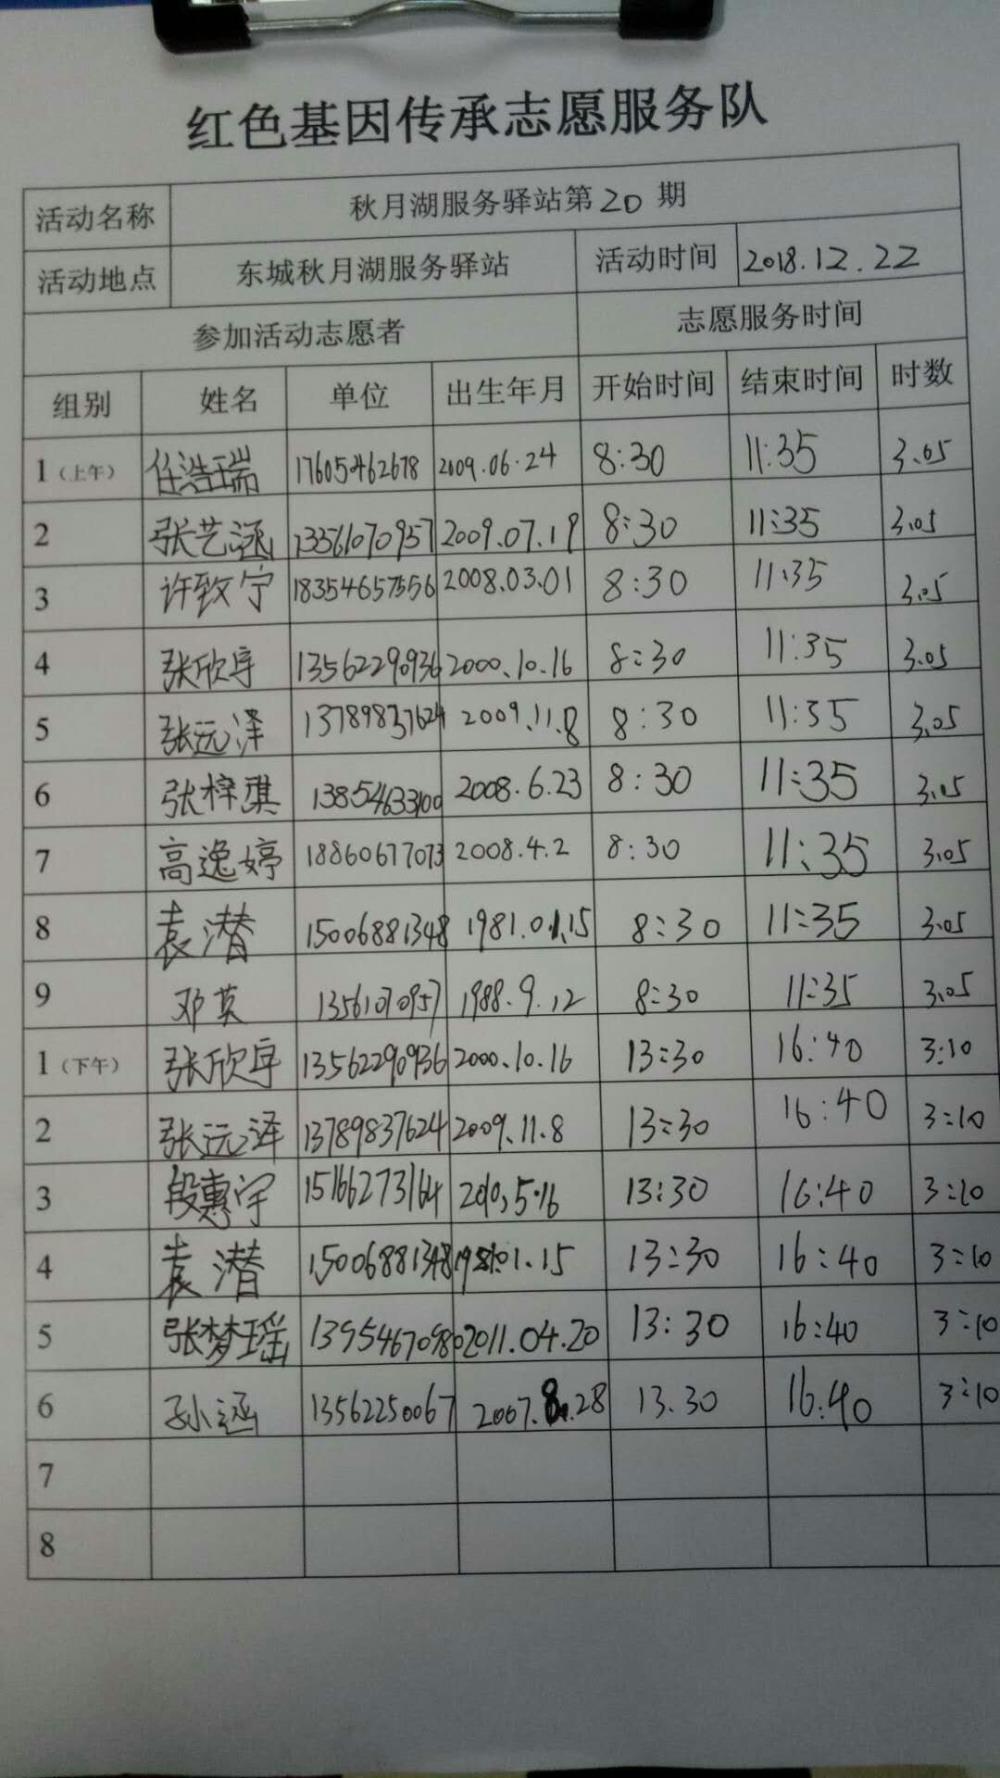 红色基因传承志愿服务队
活动名称 秋月湖服务驿站第20期
活动地点 东城秋月湖服务驿站 活动时间 2018.12.22
参加活动志愿者 志愿服务时间
组别 姓名 单位 出生年月 开始时间 结束时间 时数
1（上午） 任浩瑞 17605462678 2009.06.24 8:30 11:35 3.05
2 张艺涵 13561070957 2009.07.19 8:30 11:35 3.05
3 许致宁 18354657556 2008.03.01 8:30 11:35 3.05
4 张欣宇 13562290936 2000.10.16 8:30 11:35 3.05
5 张远泽 13789837624 2009.11.8 8:30 11:35 3.05
6 张梓琪 13854633100 2008.6.23 8:30 11:35 3.05
7 高逸婷 18860677073 2008.4.2 8:30 11:35 3.05
8 袁潜 15006881348 1981.01.15 8:30 11:35 3.05
9 邓英 13561070957 1988.9.12 8:30 11:35 3.05
1（下午） 张欣宇 13562290936 2000.10.16 13:30 16:40 3:10
2 张远泽 13789837624 2009.11.8 13:30 16:40 3:10
3 段惠宇 15166273164 2010.5.16 13:30 16:40 3:10
4 袁潜 15006881348 1981.01.15 13:30 16:40 3:10
5 张梦瑶 13954670980 2011.04.20 13:30 16:40 3:10
6 孙涵 13562250067 2007.8.28 13.30 16:40 3:10
7
8